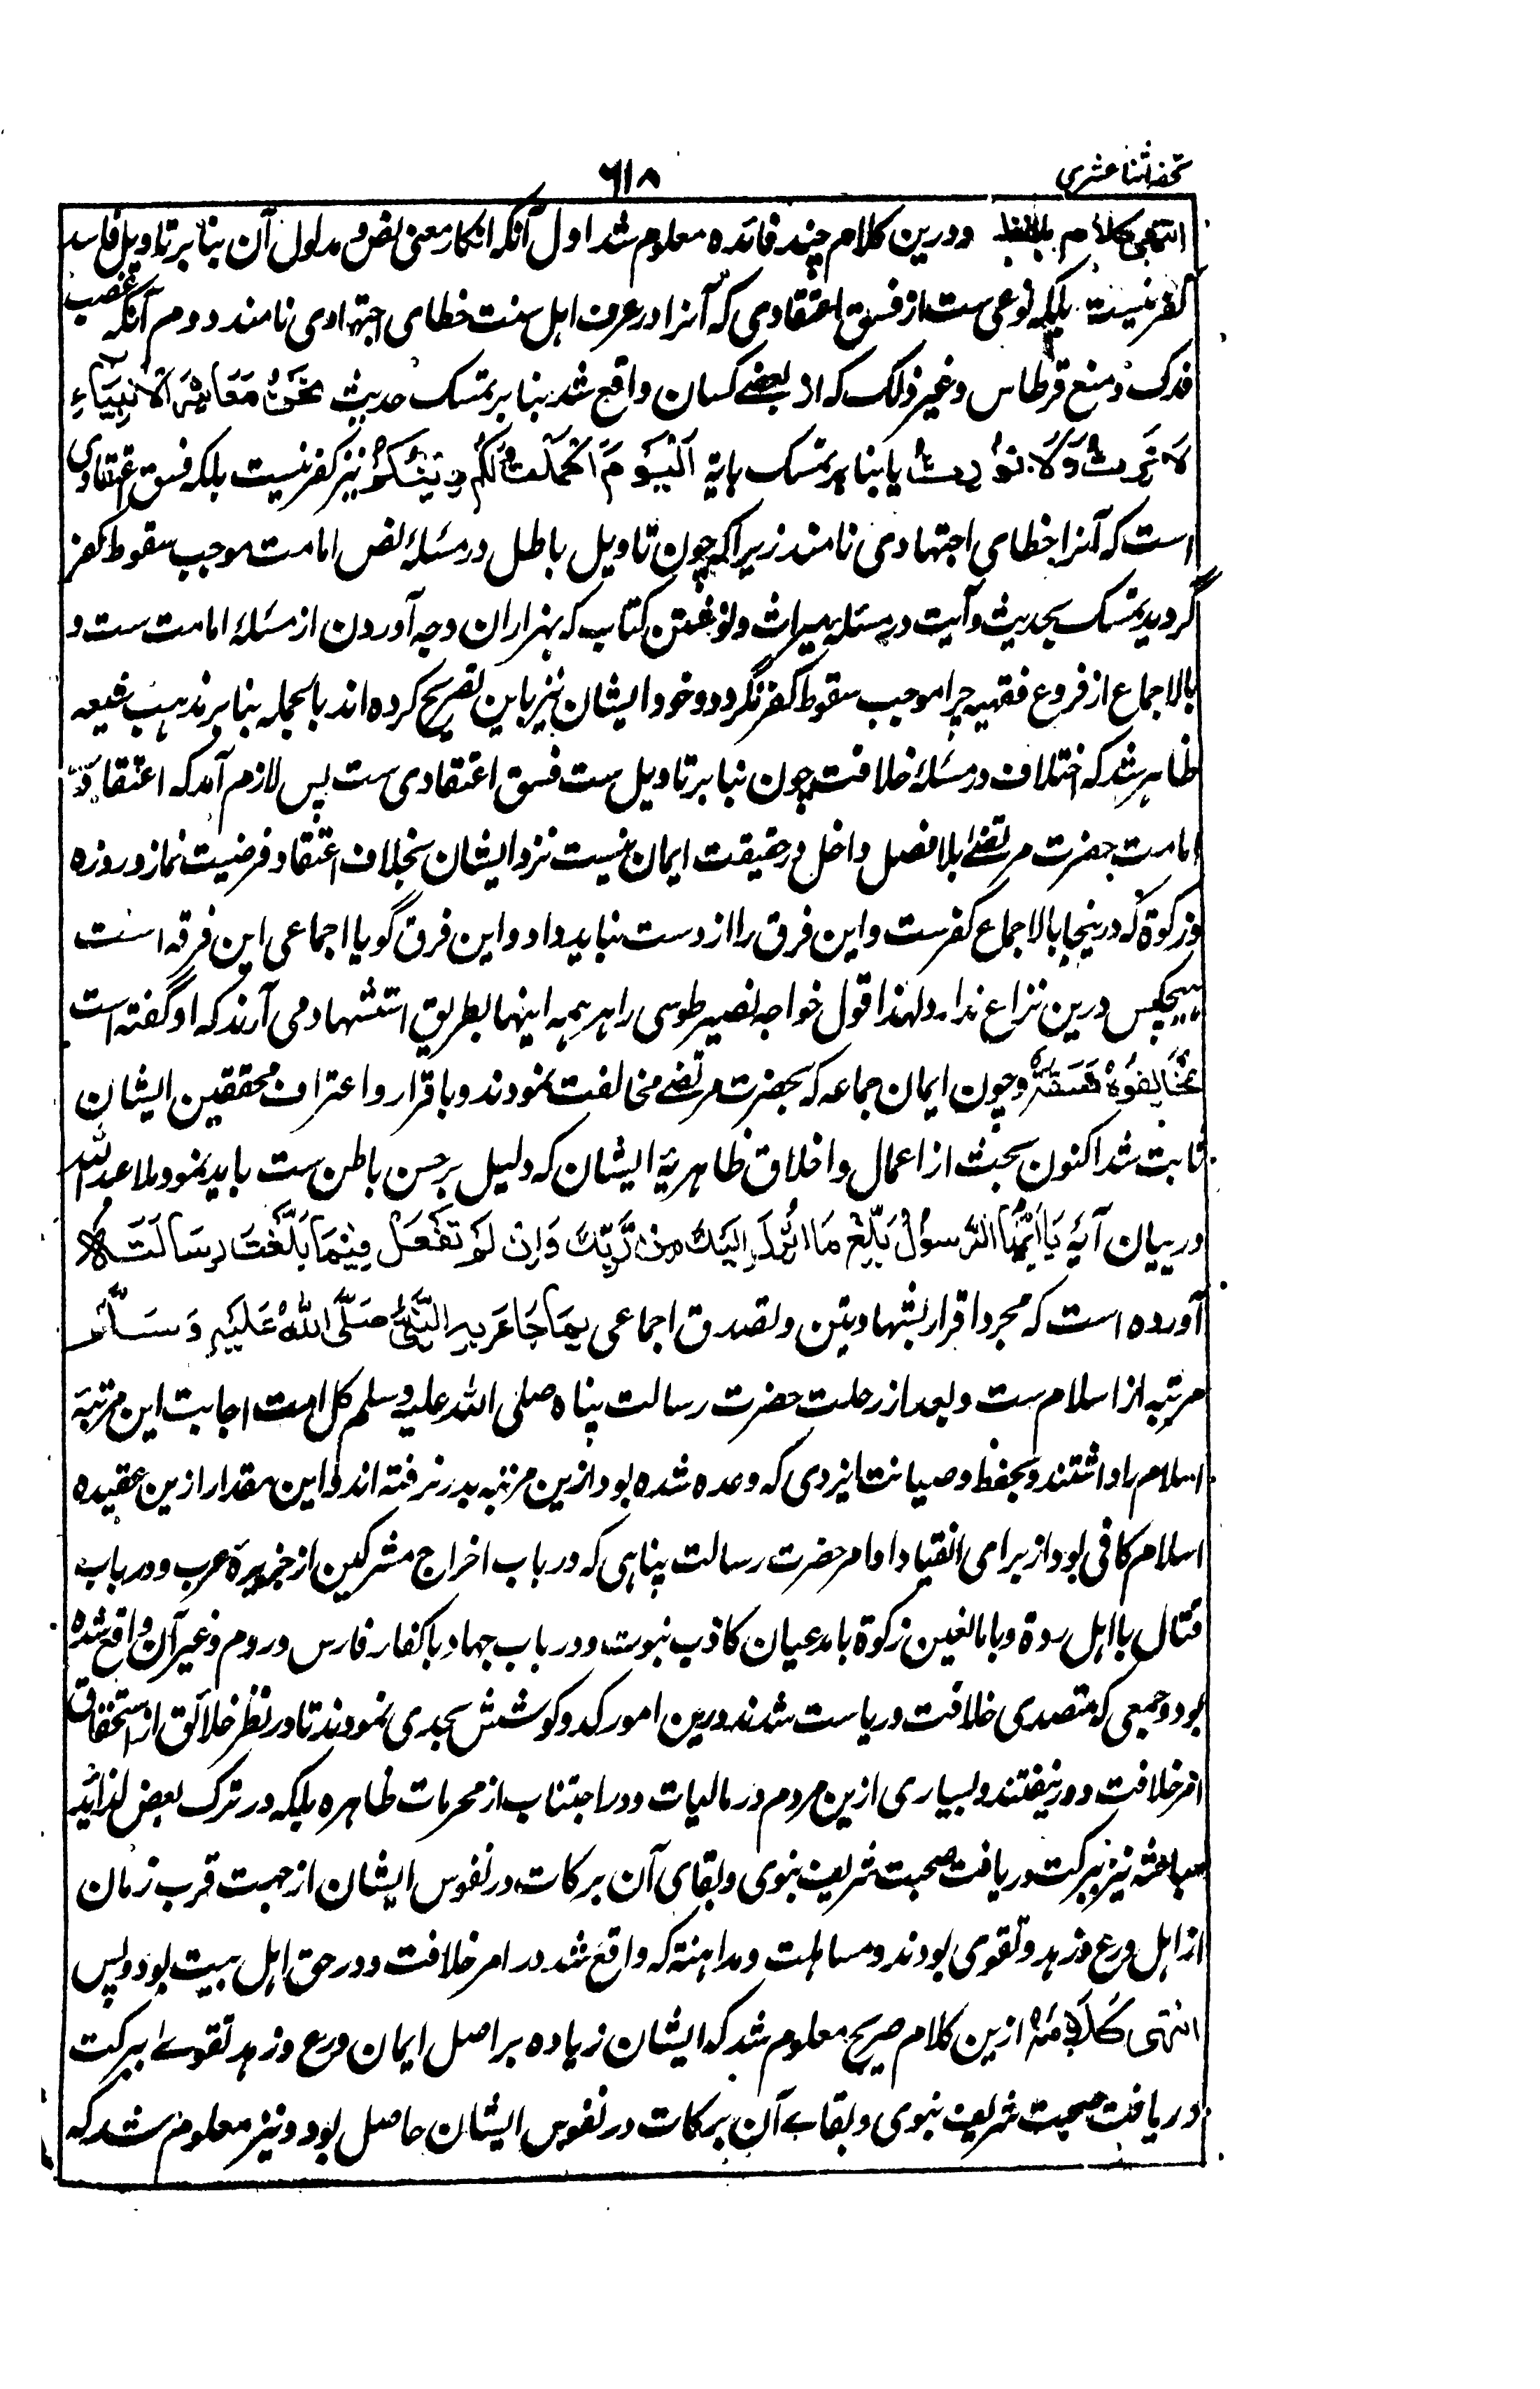 تحفه اثنا عشری
۶۱۸
انتهی کلامه بلفظه ودرین کلام چند فائده معلوم شد اول آنکه انکار معنی نص و مدلول آن بنا بر تاویل فاسد
کفر نیست بلکه نوعی ست از فسق اعتقادی که آنرا در عرف اهل سنت خطای اجتهادی نامند دوم آنکه غصب
فدک و منع قرطاس وغیر ذلک که از بعضے کسان واقع شد بنا بر تمسک حدیث نَحْنُ مَعَاشِرَ الْاَنْبِیَاءِ
لَا نَرِثُ وَلَا نُوْرِثُ یا بنا بر تمسک بایة اَلْیَوْمَ اَکْمَلْتُ لَکُمْ دِیْنَکُمْ نیز کفر نیست بلکه فسق اعتقادی
است که آنرا خطای اجتهادی نامند زیرا که چون تاویل باطل در مسئلۂ نص امامت موجب سقوط کفر
گردید تمسک بحدیث و آیت در مسئله میراث و نوشتن کتاب که بهزاران وجه آوردن از مسئلۂ امامت ست و
بالاجماع از فروع فقهیه چرا موجب سقوط کفر نگردد وخود ایشان نیز باین تصریح کرده اند بالجمله بنا بر مذهب شیعه
ظاهر شد که اختلاف در مسئلۂ خلافت چون بنا بر تاویل ست فسق اعتقادی ست پس لازم آمد که اعتقاد
امامت حضرت مرتضےٰ بلا فصل داخل در حقیقت ایمان نیست نزد ایشان بخلاف اعتقاد فرضیت نماز و روزه
وزکوة که درینجا بالاجماع کفرست واین فرق را از دست نباید داد واین فرق گویا اجماعی این فرقه است
هیچکس درین نزاع ندارد ولهذا قول خواجه نصیر طوسی را هر همه اینها بطریق استشهاد می آرند که او گفته است
مُخَالِفُوْهُ فَسَقَةٌ وچون ایمان جماعه که بحضرت مرتضےٰ مخالفت نمودند و باقرار و اعتراف محققین ایشان
ثابت شد اکنون بحث از اعمال و اخلاق ظاهریۂ ایشان که دلیل بر حسن باطن ست باید نمود ملا عبد الله
در بیان آیۂ یَا اَیُّهَا الرَّسُوْلُ بَلِّغْ مَا اُنْزِلَ اِلَیْكَ مِنْ رَّبِّكَ وَاِنْ لَّمْ تَفْعَلْ فَمَا بَلَّغْتَ رِسَالَتَهٗ
آورده است که مجرد اقرار بشهادتین و تصدیق اجماعی بِمَا جَاءَ بِهِ النَّبِیُّ صَلَّی اللّٰهُ عَلَیْهِ وَسَلَّمَ
مرتبه از اسلام ست و بعد از رحلت حضرت رسالت پناه صلی الله علیه وسلم کل امت اجابت این مرتبۂ
اسلام را داشتند و بحفظ وصیانت ایزدی که وعده شده بود ازین مرتبه بدر نرفته اند واین مقدار ازین عقیده
اسلام کافی بود از برای انقیاد اوامر حضرت رسالت پناهی که در باب اخراج مشرکین از جزیرۂ عرب ودر باب
قتال با اهل ردة وبا مانعین زکوة با مدعیان کاذب نبوت ودر باب جهاد با کفار فارس و روم وغیر آن واقع شده
بود وجمعی که متصدی خلافت وریاست شدند درین امور کد وکوشش بجدی نمودند تا در نظر خلائق از استحقاق
امر خلافت دور نیفتند وبسیاری ازین مردم در مالیات ودر اجتناب از محرمات ظاهره بلکه در ترک بعض لذائذ
مباحثه نیز ببرکت دریافت صحبت شریف نبوی وبقای آن برکات در نفوس ایشان از جهت قرب زمان
از اهل ورع وزهد وتقوی بودند ومساهلت ومداهنته که واقع شد در امر خلافت ودر حق اهل بیت بود وبس
انتهی کَلَامُهٗ ازین کلام صریح معلوم شد که ایشان زیاده بر اصل ایمان ورع وزهد تقوے ببرکت
دریافت صحبت شریف نبوی وبقاے آن برکات در نفوس ایشان حاصل بود ونیز معلوم شد که